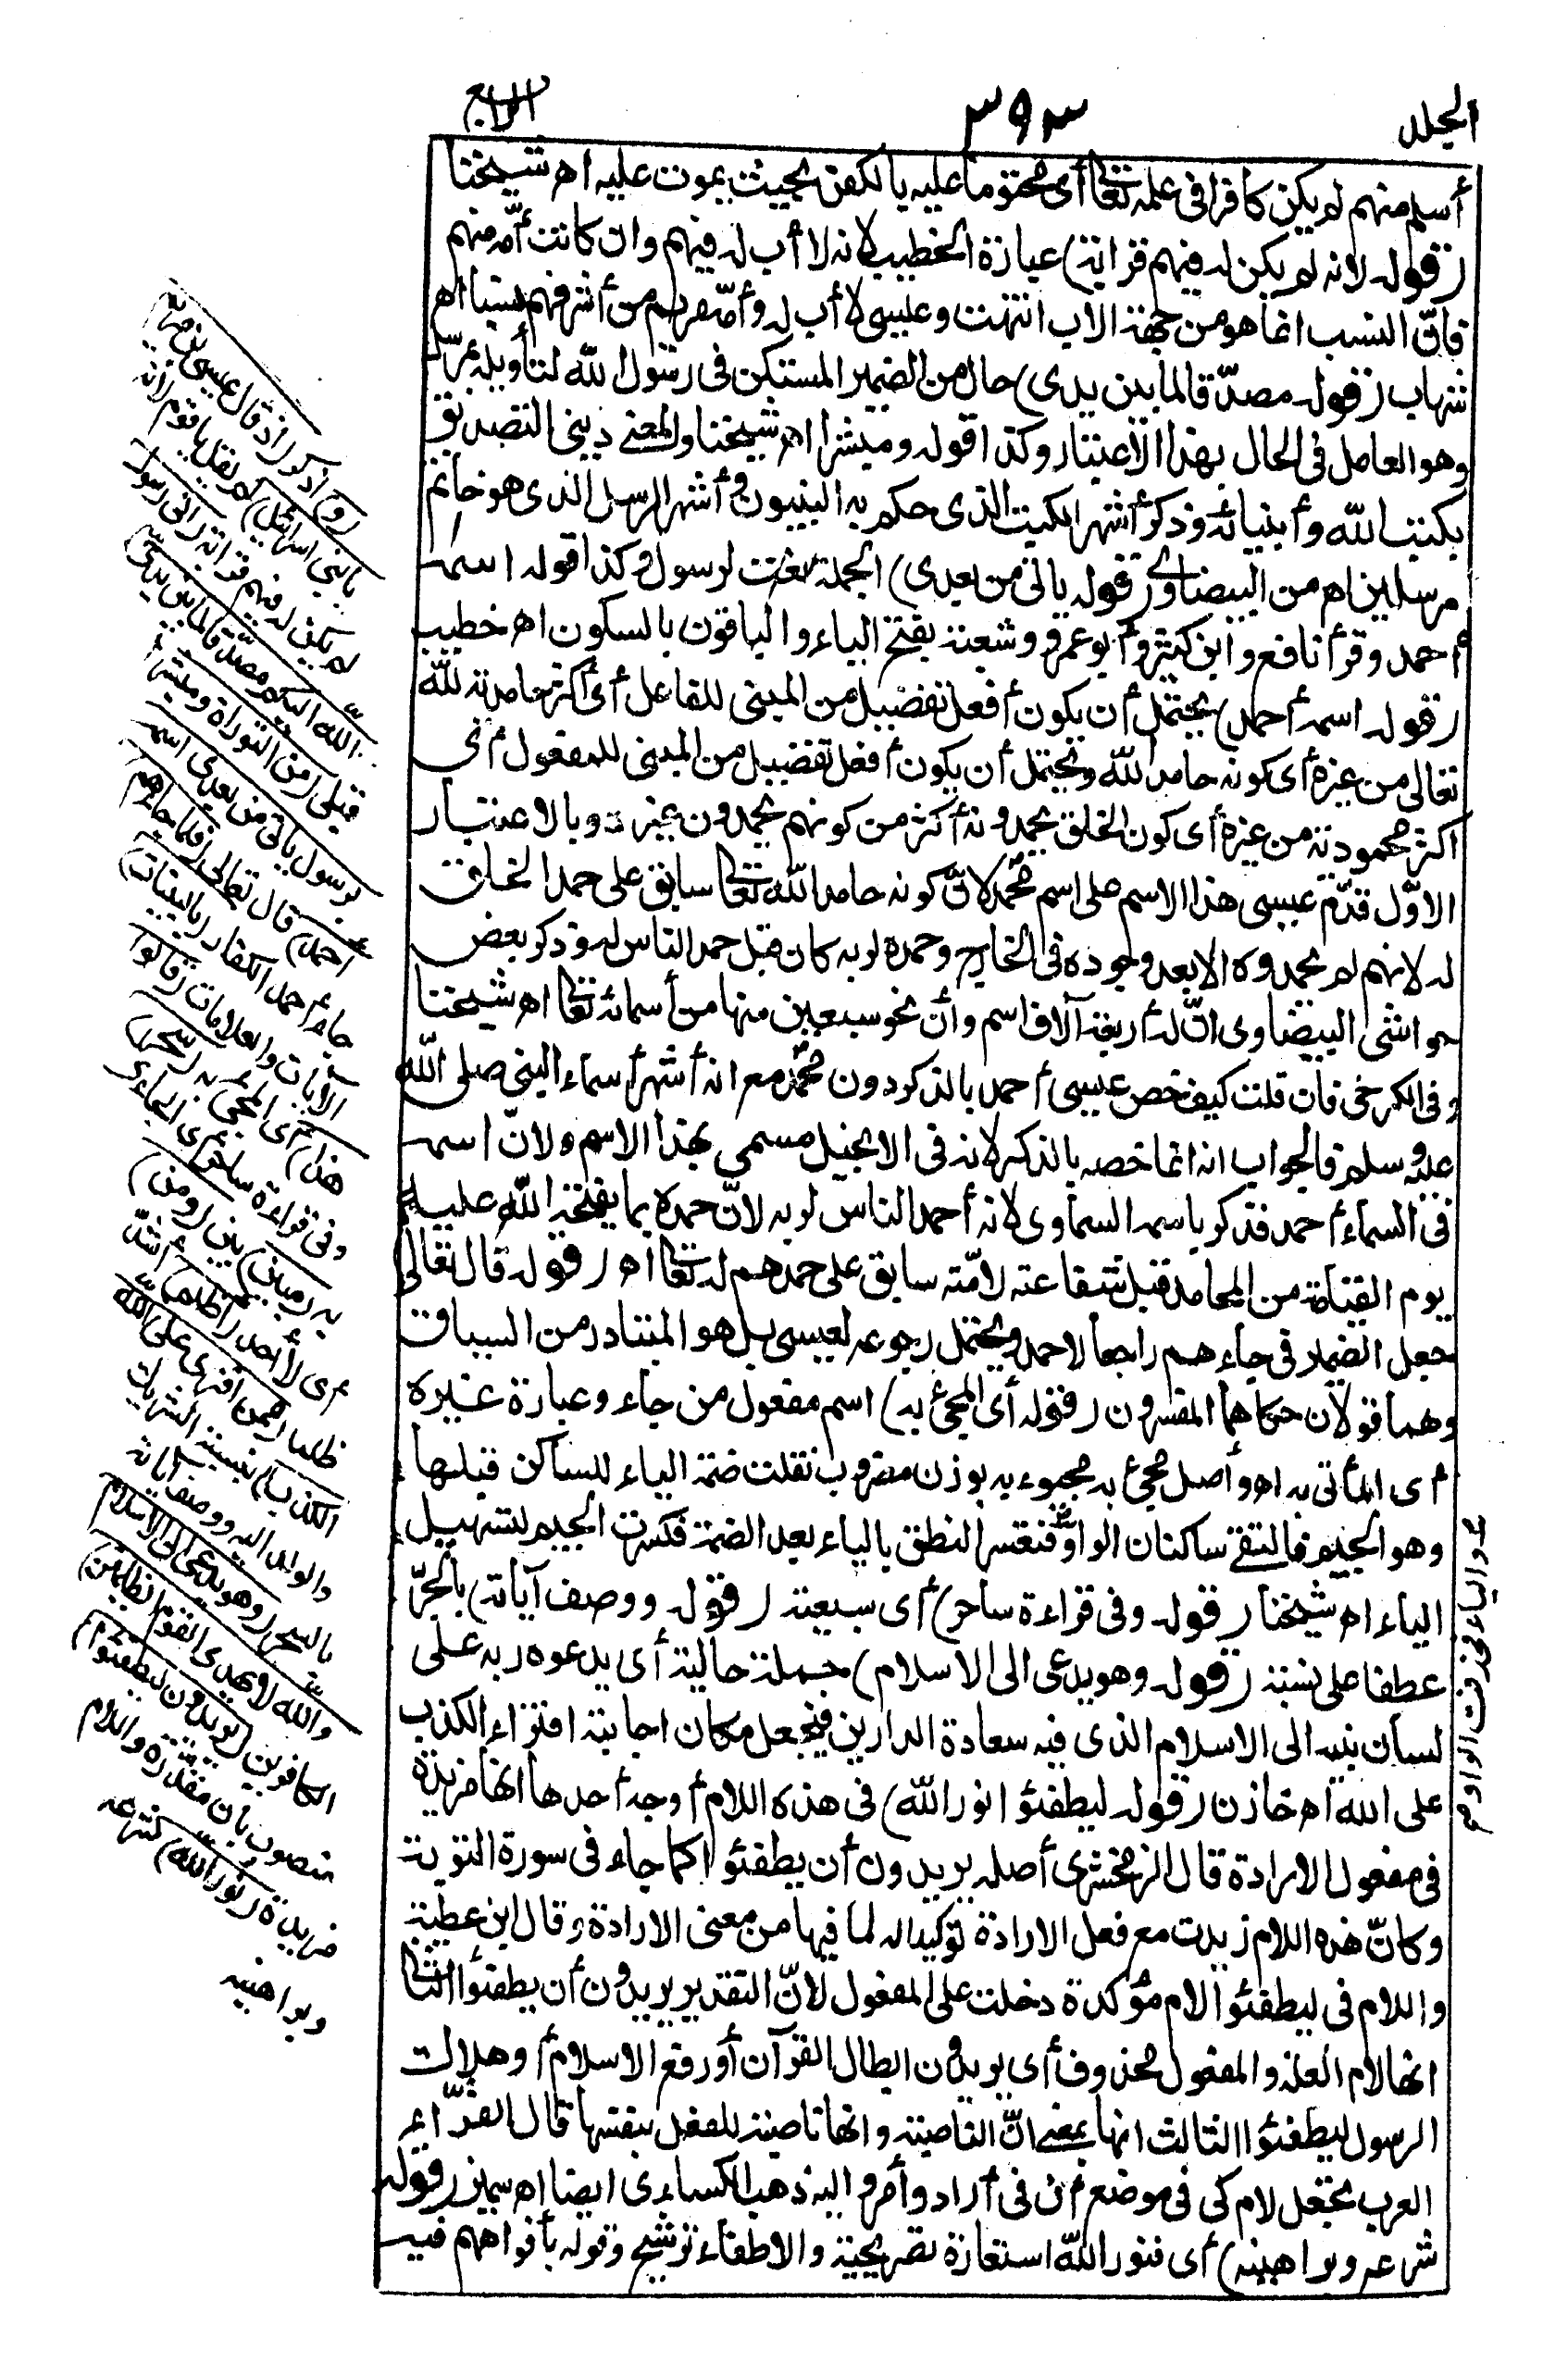 المجلد
٣٩٣
الرابع
أسلم منهم لم يكن كافرا فى علمه تعالى أى محتوما عليه بالكفر بحيث يموت عليه اه شيخنا
(قوله لانه لم يكن له فيهم قرابة) عبارة الخطيب لانه لا أب له فيهم وان كانت أمه منهم
فانّ النسب انما هو من جهة الاب انتهت وعيسى لا أب له وأمّه مريم من أشرفهم نسبا اه
شهاب (قوله مصدّقا لما بين يدى) حال من الضمير المستكن فى رسول الله لتأويله بمرسل
وهو العامل فى الحال بهذا الاعتبار وكذا قوله ومبشرا اه شيخنا والمعنى دينى التصديق
بكتب الله وأنبيائه وذكر أشهر الكتب الذى حكم به النبيون وأشهر الرسل الذى هو خاتم
مرسلين اه من البيضاوى (قوله يأتى من بعدى) الجملة نعت لرسول وكذا قوله اسمه
أحمد وقرأ نافع وابن كثير وأبو عمرو وشعبة بفتح الياء والباقون بالسكون اه خطيب
(قوله اسمه أحمد) يحتمل أن يكون أفعل تفضيل من المبنى للفاعل أى أكثر حامدية لله
تعالى من غيره أى كونه حامدا لله ويحتمل أن يكون أفعل تفضيل من المبنى للمفعول أى
أكثر محمودية من غيره أى كون الخلق يحمدونه أكثر من كونهم يحمدون غيره وبالاعتبار
الاوّل قدّم عيسى هذا الاسم على اسم محمد لانّ كونه حامدا لله تعالى سابق على حمد الخلق
له لانهم لم يحمدوه الا بعد وجوده فى الخارج وحمده لربه كان قبل حمد الناس له وذكر بعض
حواشى البيضاوى انّ له أربعة آلاف اسم وأن نحو سبعين منها من أسمائه تعالى اه شيخنا
وفى الكرخى فان قلت كيف خص عيسى أحمد بالذكر دون محمد مع انه أشهر أسماء النبى صلى الله
عليه وسلم فالجواب انه انما خصه بالذكر لانه فى الانجيل مسمى بهذا الاسم ولانّ اسمه
فى السماء أحمد فذكر باسمه السماوى لانه أحمد الناس لربه لانّ حمده بما يفتحه الله عليه
يوم القيامة من المحامد قبل شفاعته لامّته سابق على حمدهم له تعالى اه (قوله قال تعالى)
جعل الضمير فى جاءهم راجعا لاحمد ويحتمل رجوعه لعيسى بل هو المتبادر من السياق
وهما قولان حكاهما المفسرون (قوله أى المجئ به) اسم مفعول من جاء وعبارة غيره
أى المأتى به اه وأصل مجئ به مجيوء به بوزن مضروب نقلت ضمة الياء للساكن قبلها
وهو الجيم فالتقى ساكنان الواو فتعسر النطق بالياء بعد الضمة فكسرت الجيم لتسهيل
الياء اه شيخنا (قوله وفى قراءة ساحر) أى سبعية (قوله ووصف آياته) بالجرّ
عطفا على نسبة (قوله وهو يدعى الى الاسلام) جملة حالية أى يدعوه ربه على
لسان نبيه الى الاسلام الذى فيه سعادة الدارين فيجعل مكان اجابته افتراء الكذب
على الله اه خازن (قوله ليطفئوا نور الله) فى هذه اللام أوجه أحدها انها مزيدة
فى مفعول الارادة قال الزمخشرى أصله يريدون أن يطفئوا كما جاء فى سورة التوبة
وكانّ هذه اللام زيدت مع فعل الارادة توكيدا له لما فيها من معنى الارادة وقال ابن عطية
واللام فى ليطفئوا لام مؤكدة دخلت على المفعول لانّ التقدير يريدون أن يطفئوا الثانى
انها لام العلة والمفعول محذوف أى يريدون ابطال القرآن أو رفع الاسلام أو هلاك
الرسول ليطفئوا الثالث انها بمعنى انّ الناصبة وانها ناصبة للفعل بنفسها قال الفرّاء
العرب تجعل لام كى فى موضع أن فى أراد وأمر واليه ذهب الكساءى ايضا اه سمين (قوله
شرعه وبراهينه) أى فنور الله استعارة تصريحية والاطفاء ترشيح وقوله بأفواههم فيه
والياء فحذفت الواو
(و) اذكر (اذ قال عيسى بن مريم
يا بنى اسرائيل) لم يقل يا قوم لانه
لم يكن له فيهم قرابة (انى رسول
الله اليكم مصدّقا لما بين يدىّ)
قبلى (من التوراة ومبشرا
برسول يأتى من بعدى اسمه
أحمد) قال تعالى (فلما جاءهم)
جاء أحمد الكفار (بالبينات)
الآيات والعلامات (قالوا
هذا) أى المجئ به (سحر)
وفى قراءة ساحر أى الجاءى
به (مبين) بين (ومن)
أى لا أحد (أظلم) أشدّ
ظلما (ممن افترى على الله
الكذب) بنسبة الشريك
والولد اليه ووصف آياته
بالسحر (وهو يدعى الى الاسلام
والله لا يهدى القوم الظالمين)
الكافرين (يريدون ليطفئوا)
منصوب بأن مقدّرة واللام
مزيدة (نور الله) شرعه
وبراهينه